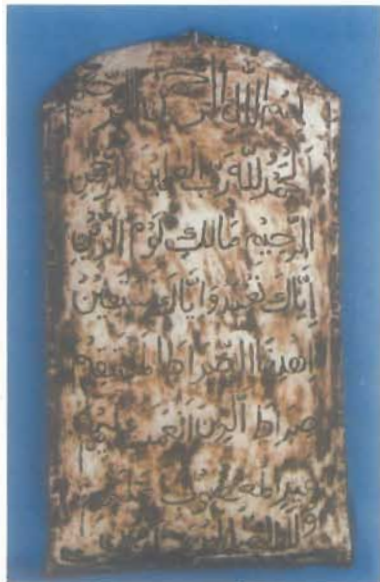 بسم الله الرحمن الرحيم
الحمد لله رب العلمين الرحمن
الرحيم مالك يوم الدين
إياك نعبد وإياك نستعين
اهدنا الصراط المستقيم
صراط الذين أنعمت عليهم
غير المغضوب عليهم
ولا الضالين